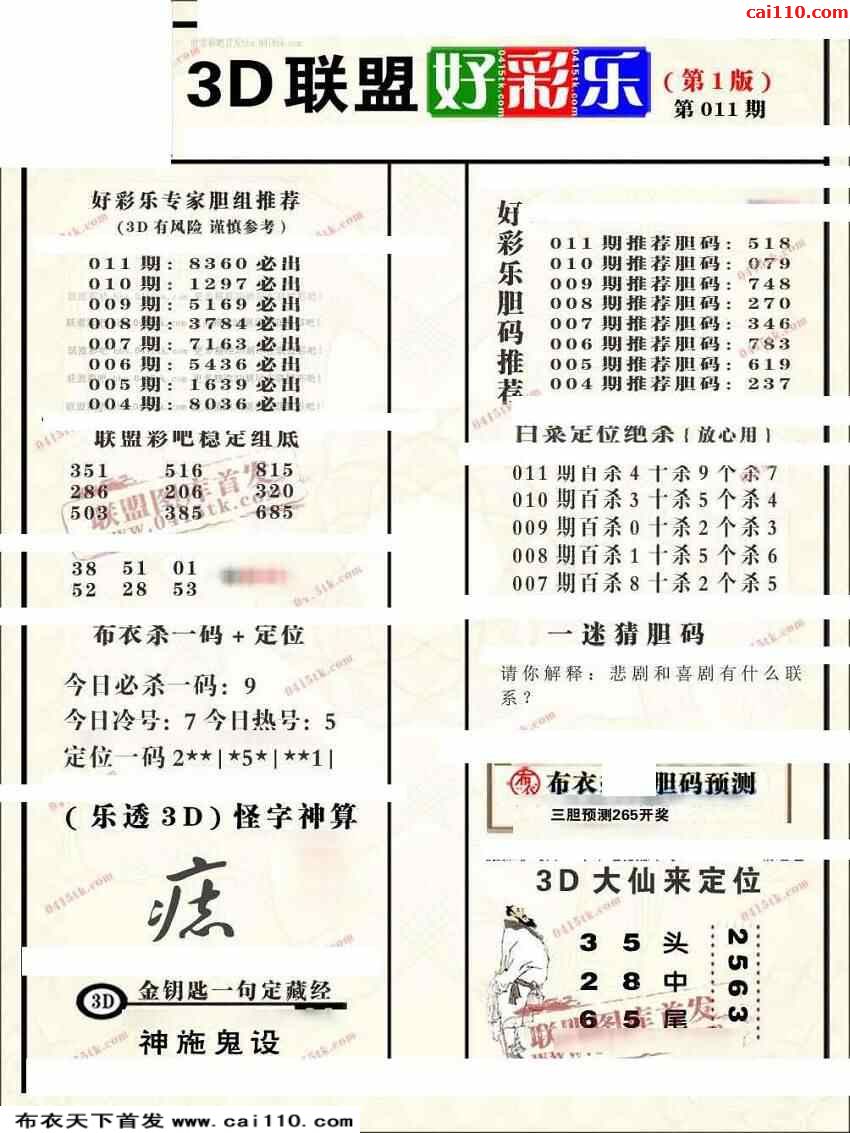 cai110.com
3D联盟 好彩乐 (第1版)
0415tk.com 0415tk.com 0415tk.com
第011期
好彩乐专家胆组推荐
(3D有风险 谨慎参考)
011期: 8360必出
010期: 1297必出
009期: 5169必出
008期: 3784必出
007期: 7163必出
006期: 5436必出
005期: 1639必出
004期: 8036必出
联盟彩吧稳定组底
351 516 815
286 206 320
503 385 685
联盟图库首发
www.0415tk.com
38 51 01
52 28 53
布衣杀一码+定位
今日必杀一码: 9
今日冷号: 7 今日热号: 5
定位一码 2**|*5*|**1|
(乐透3D) 怪字神算
痣
3D 金钥匙一句定藏经
神施鬼设
好彩乐胆码推荐
011期推荐胆码: 518
010期推荐胆码: 079
009期推荐胆码: 748
008期推荐胆码: 270
007期推荐胆码: 346
006期推荐胆码: 783
005期推荐胆码: 619
004期推荐胆码: 237
白菜定位绝杀{放心用}
011期百杀4十杀9个杀7
010期百杀3十杀5个杀4
009期百杀0十杀2个杀3
008期百杀1十杀5个杀6
007期百杀8十杀2个杀5
一迷猜胆码
请你解释: 悲剧和喜剧有什么联
系?
布衣 布衣 胆码预测
三胆预测265开奖
3D大仙来定位
3 5 头
2 8 中
6 5 尾
2563
联盟图库首发
0415tk.com
布衣天下首发 www.cai110.com